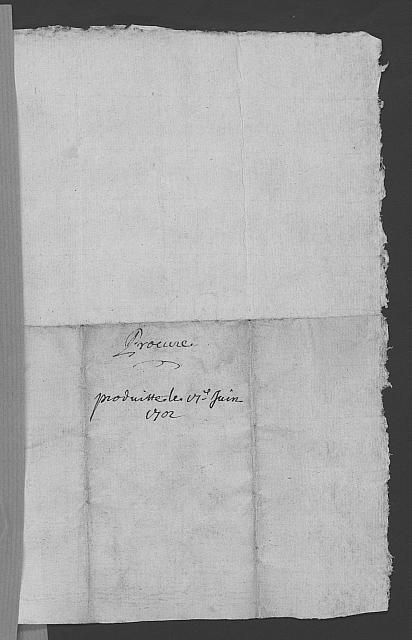 Procure.
produitte le 17.e Juin
1702